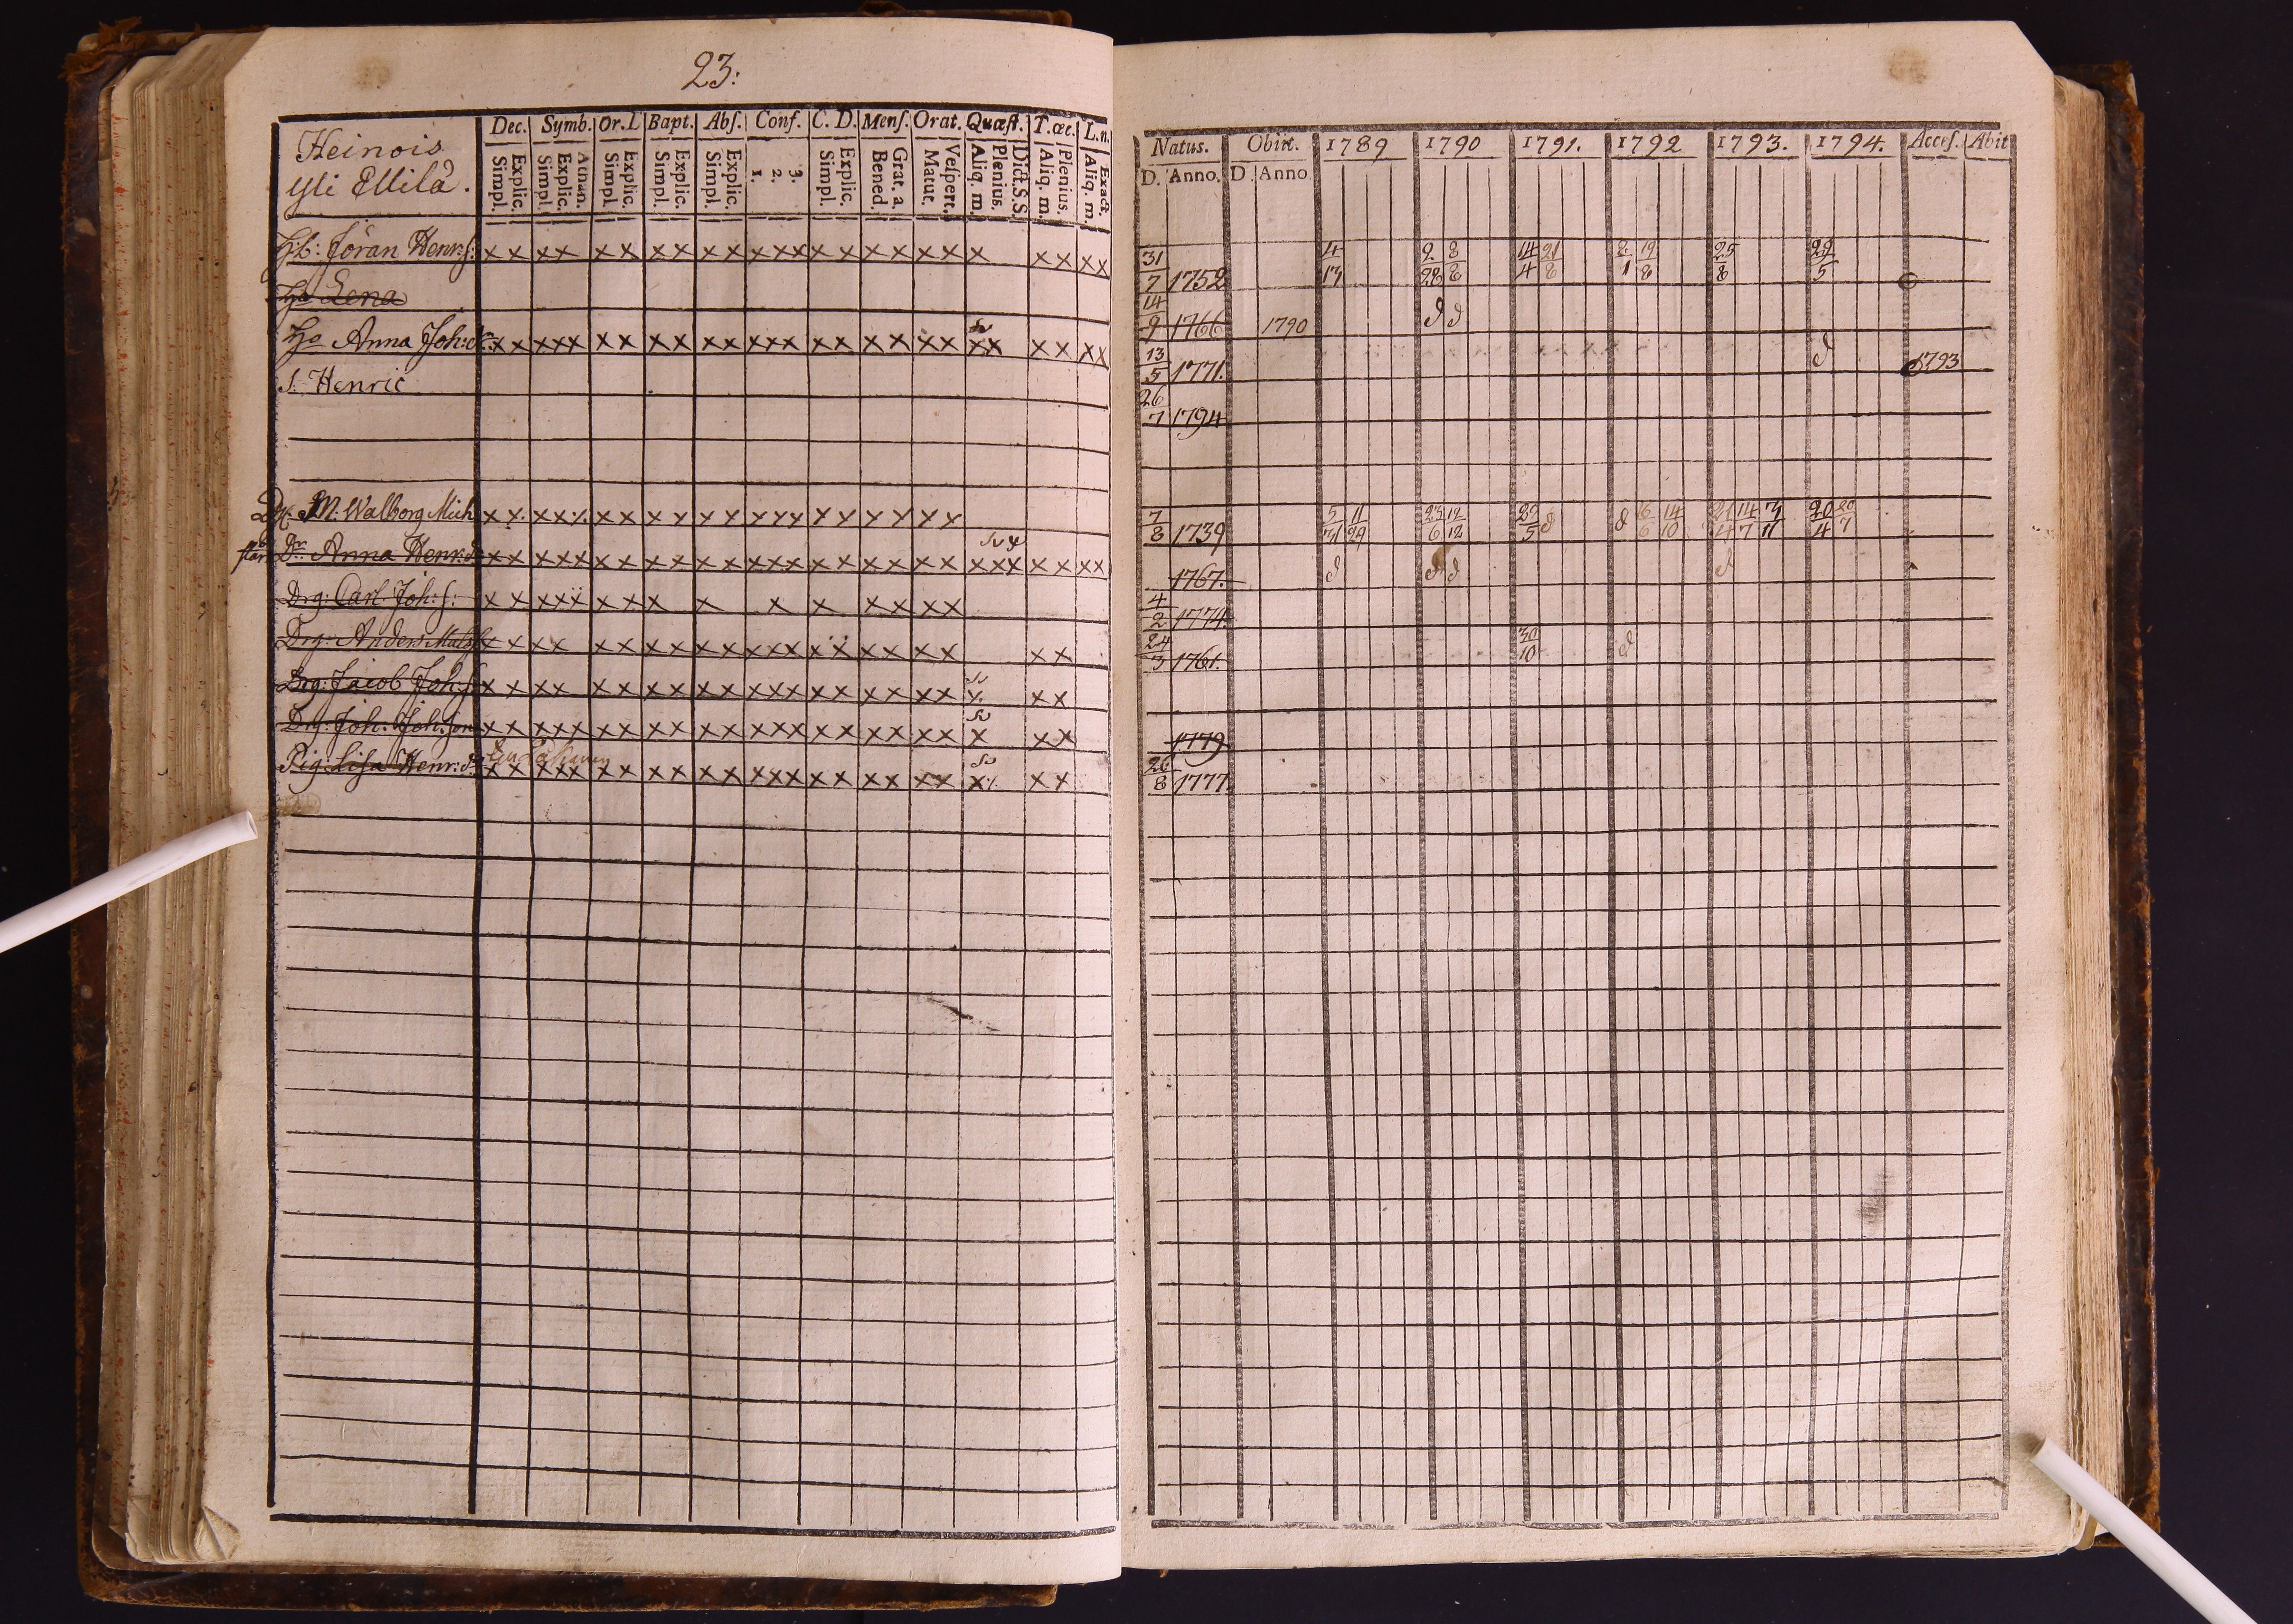 23:
Heinois
yli Ellilä.
Dec. Symb. Or. D Bapt. Abs. Conf. C. D. Mens. Orat. Quæst. T. œc. L. n.
Simpl. Explic. Simpl. Explic. Athan. Simpl. Explic. Simpl. Explic. Simpl. Explic. 1. 2. 3. Simpl. Explic. Bened. Grat. a. Matut. Vespert. Aliq. m. Plenius. Dict. S.S. Aliq. m. Plenius. Aliq. m. Exact.
Hb: Jöran Henr: s:
Ho Lena
Ho Anna Joh: d:
S. Henric
M: Walborg Mich
Dr Anna Henr: d:
Drg: Carl Joh: s:
Drg: Anders Mats
Drg: Jacob Joh: s:
Dr: Joh: Joh: son
Pig: Lisa Henr: d:
Natus. Obiit. 1789 1790 1791. 1792 1793. 1794. Acces. Abit
D. Anno. D. Anno
31/7 1752 4/13 2/28 8/8 14/4 21/8 8/1 19/8 25/8 29/5
14/9 1766 1790
13/5 1771. 1793
26/7 1794
7/8 1739 5/31 11/29 23/6 12/12 29/5 16/6 14/10 21/4 14/7 3/11 20/4 20/7
1767.
4/2 1774.
24/3 1761. 30/10
1779
26/8 1777.